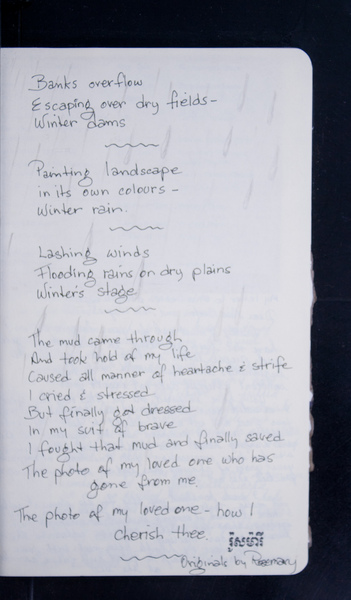 Banks overflow
Escaping over dry fields-
Winter dams
Painting landscape
in its own colours-
Winter rain.
Lashing winds
Flooding rains on dry plains
Winter's stage
The mud came through
And took hold of my life
Caused all manner of heartache & strife
I cried & stressed
But finally got dressed
In my suit of brave
I fought that mud and finally saved
The photo of my loved one who has
gone from me.
The photo of my loved one - how I
Cherish thee.
Originals by Rosemary